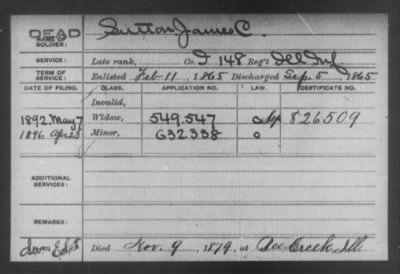 DEAD
NAME OF SOLDIER: Sutton James C.
SERVICE: Late rank, Co. I 148 Reg't Ill Inf
TERM OF SERVICE: Enlisted Feb 11, 1865 Discharged Sep. 5, 1865
DATE OF FILING. CLASS. APPLICATION NO. LAW. CERTIFICATE NO.
Invalid,
1892. May 7 Widow, 549.547 826509
1896 Apr 23 Minor, 632.338
ADDITIONAL SERVICES:
REMARKS:
Died Nov. 9, 1879, at Creek, Ill.